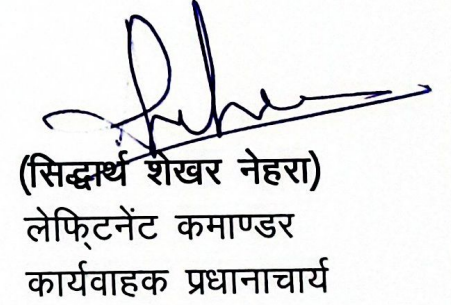 (सिद्धार्थ शेखर नेहरा)
लेफ्टिनेंट कमाण्डर
कार्यवाहक प्रधानाचार्य